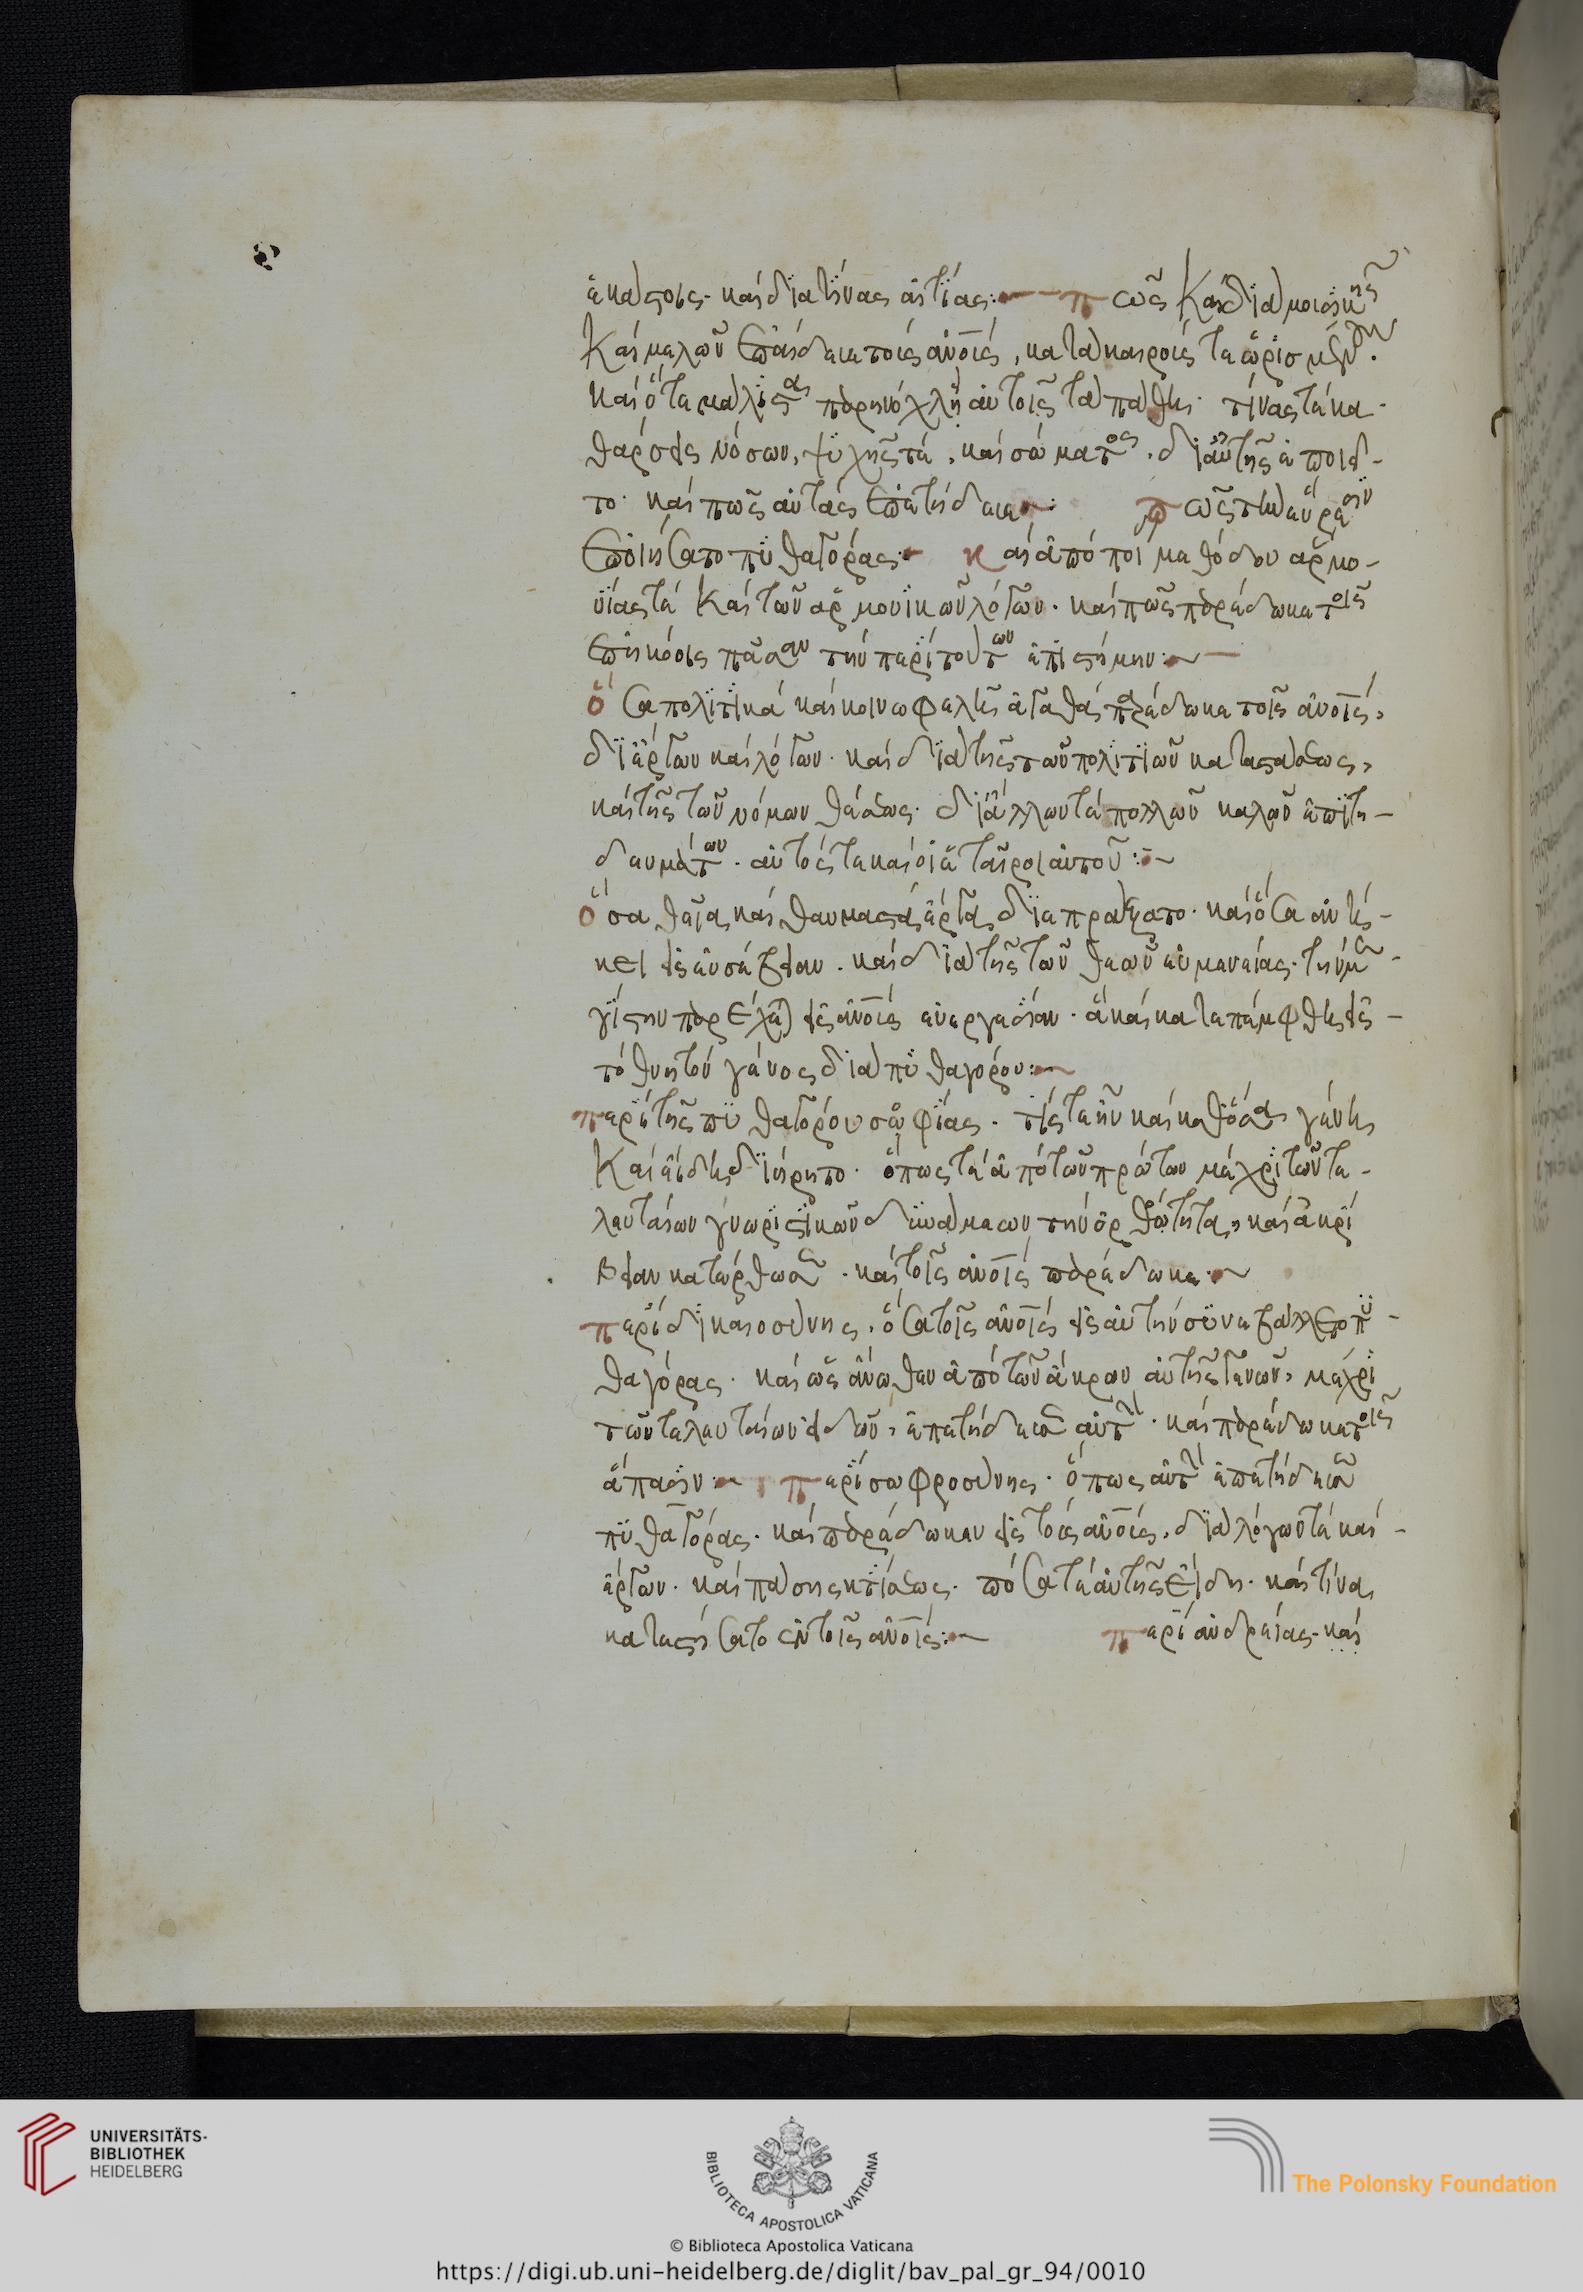 ἑκάστοις· καὶ διὰ τίνας αἰτίας: πῶς καὶ διὰ μουσικῆς
καὶ μελῶν ἐπαίδευε τοὺς ἀνους, κατὰ καιρούς τε ὡρισμένους·
καὶ ὅτε μάλιστα παρηνόχλει αὐτοῖς τὰ πάθη· τίνας τὲ κα-
θάρσεις νόσων, ψυχῆς τὲ, καὶ σώματος, δι' αὐτῆς ἐποιεῖ-
το· καὶ πῶς αὐτὰς ἐπετήδευε: πῶς τὴν εὕρεσιν
ἐποιήσατο πυθαγόρας: καὶ ἀπὸ ποί μεθόδου ἁρμο-
νίας τὲ καὶ τῶν ἁρμονικῶν λόγων· καὶ πῶς παρέδωκε τοῖς
ἐπηκόοις πᾶσαν τὴν περὶ τούτων ἐπιστήμην:
ὅσα πολιτικὰ καὶ κοινωφελῆ ἀγαθὰ παρέδωκε τοῖς ἀνοις,
δι' ἔργων καὶ λόγων· καὶ διὰ τῆς τῶν πολιτιῶν κατασκάσεως,
καὶ τῆς τῶν νόμων θέσεως· δι' ἄλλων τὲ πολλῶν καλῶν ἐπιτη-
δευμάτων· αὐτός τε καὶ οἱ ἑταῖροι αὐτοῦ:
ὅσα θεῖα καὶ θαυμαστὰ ἔργα διεπράξατο· καὶ ὅσα ἀνή-
κει εἰς εὐσέβειαν· καὶ διὰ τῆς τῶν θεῶν εὐμενείας· τὴν με-
γίστην παρέχεται εἰς ἀνους εὐεργεσίαν· ἃ καὶ κατεπέμφθη εἰς
τὸ θνητὸν γένος διὰ πυθαγόρου:
περὶ τῆς πυθαγόρου σοφίας· τίς τε ἦν καὶ καθ' ὅσα γένη
καὶ εἴδη διήρητο· ὅπως τὲ ἀπὸ τῶν πρώτων μέχρι τῶν τε-
λευταίων γνωριστικῶν δυνάμεων τὴν ὀρθότητα, καὶ ἀκρί
βειαν κατώρθωσε· καὶ τοῖς ἀνοις παρέδωκε:
περὶ δικαιοσύνης· ὅσα τοῖς ἀνοις εἰς αὐτὴν συνεβάλλετο πυ-
θαγόρας· καὶ ὡς ἄνωθεν ἀπὸ τῶν ἄκρων αὐτῆς γενῶν, μέχρι
τῶν τελευταίων εἰδῶν, ἐπετήδευσεν αὐτὴν· καὶ παρέδωκε τοῖς
ἅπασιν: περὶ σωφροσύνης· ὅπως αὐτὴν ἐπετήδευσε
πυθαγόρας· καὶ παρέδωκεν εἰς τοὺς ἀνους· διὰ λόγων τὲ καὶ
ἔργων· καὶ πάσης κτίσεως· πόσα τὲ αὐτῆς εἴδη· καὶ τίνα
κατεστήσατο ἐν τοῖς ἀνοις: περὶ ἀνδρείας· καὶ
UNIVERSITÄTS-
BIBLIOTHEK
HEIDELBERG
BIBLIOTECA APOSTOLICA VATICANA
The Polonsky Foundation
© Biblioteca Apostolica Vaticana
https://digi.ub.uni-heidelberg.de/diglit/bav_pal_gr_94/0010